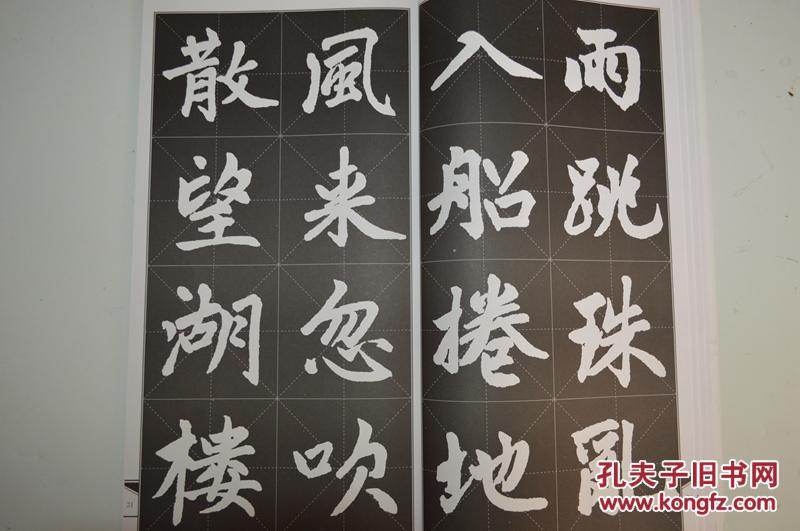 雨跳珠亂
入船捲地
風来忽吹
散望湖楼
31
孔夫子旧书网
www.kongfz.com